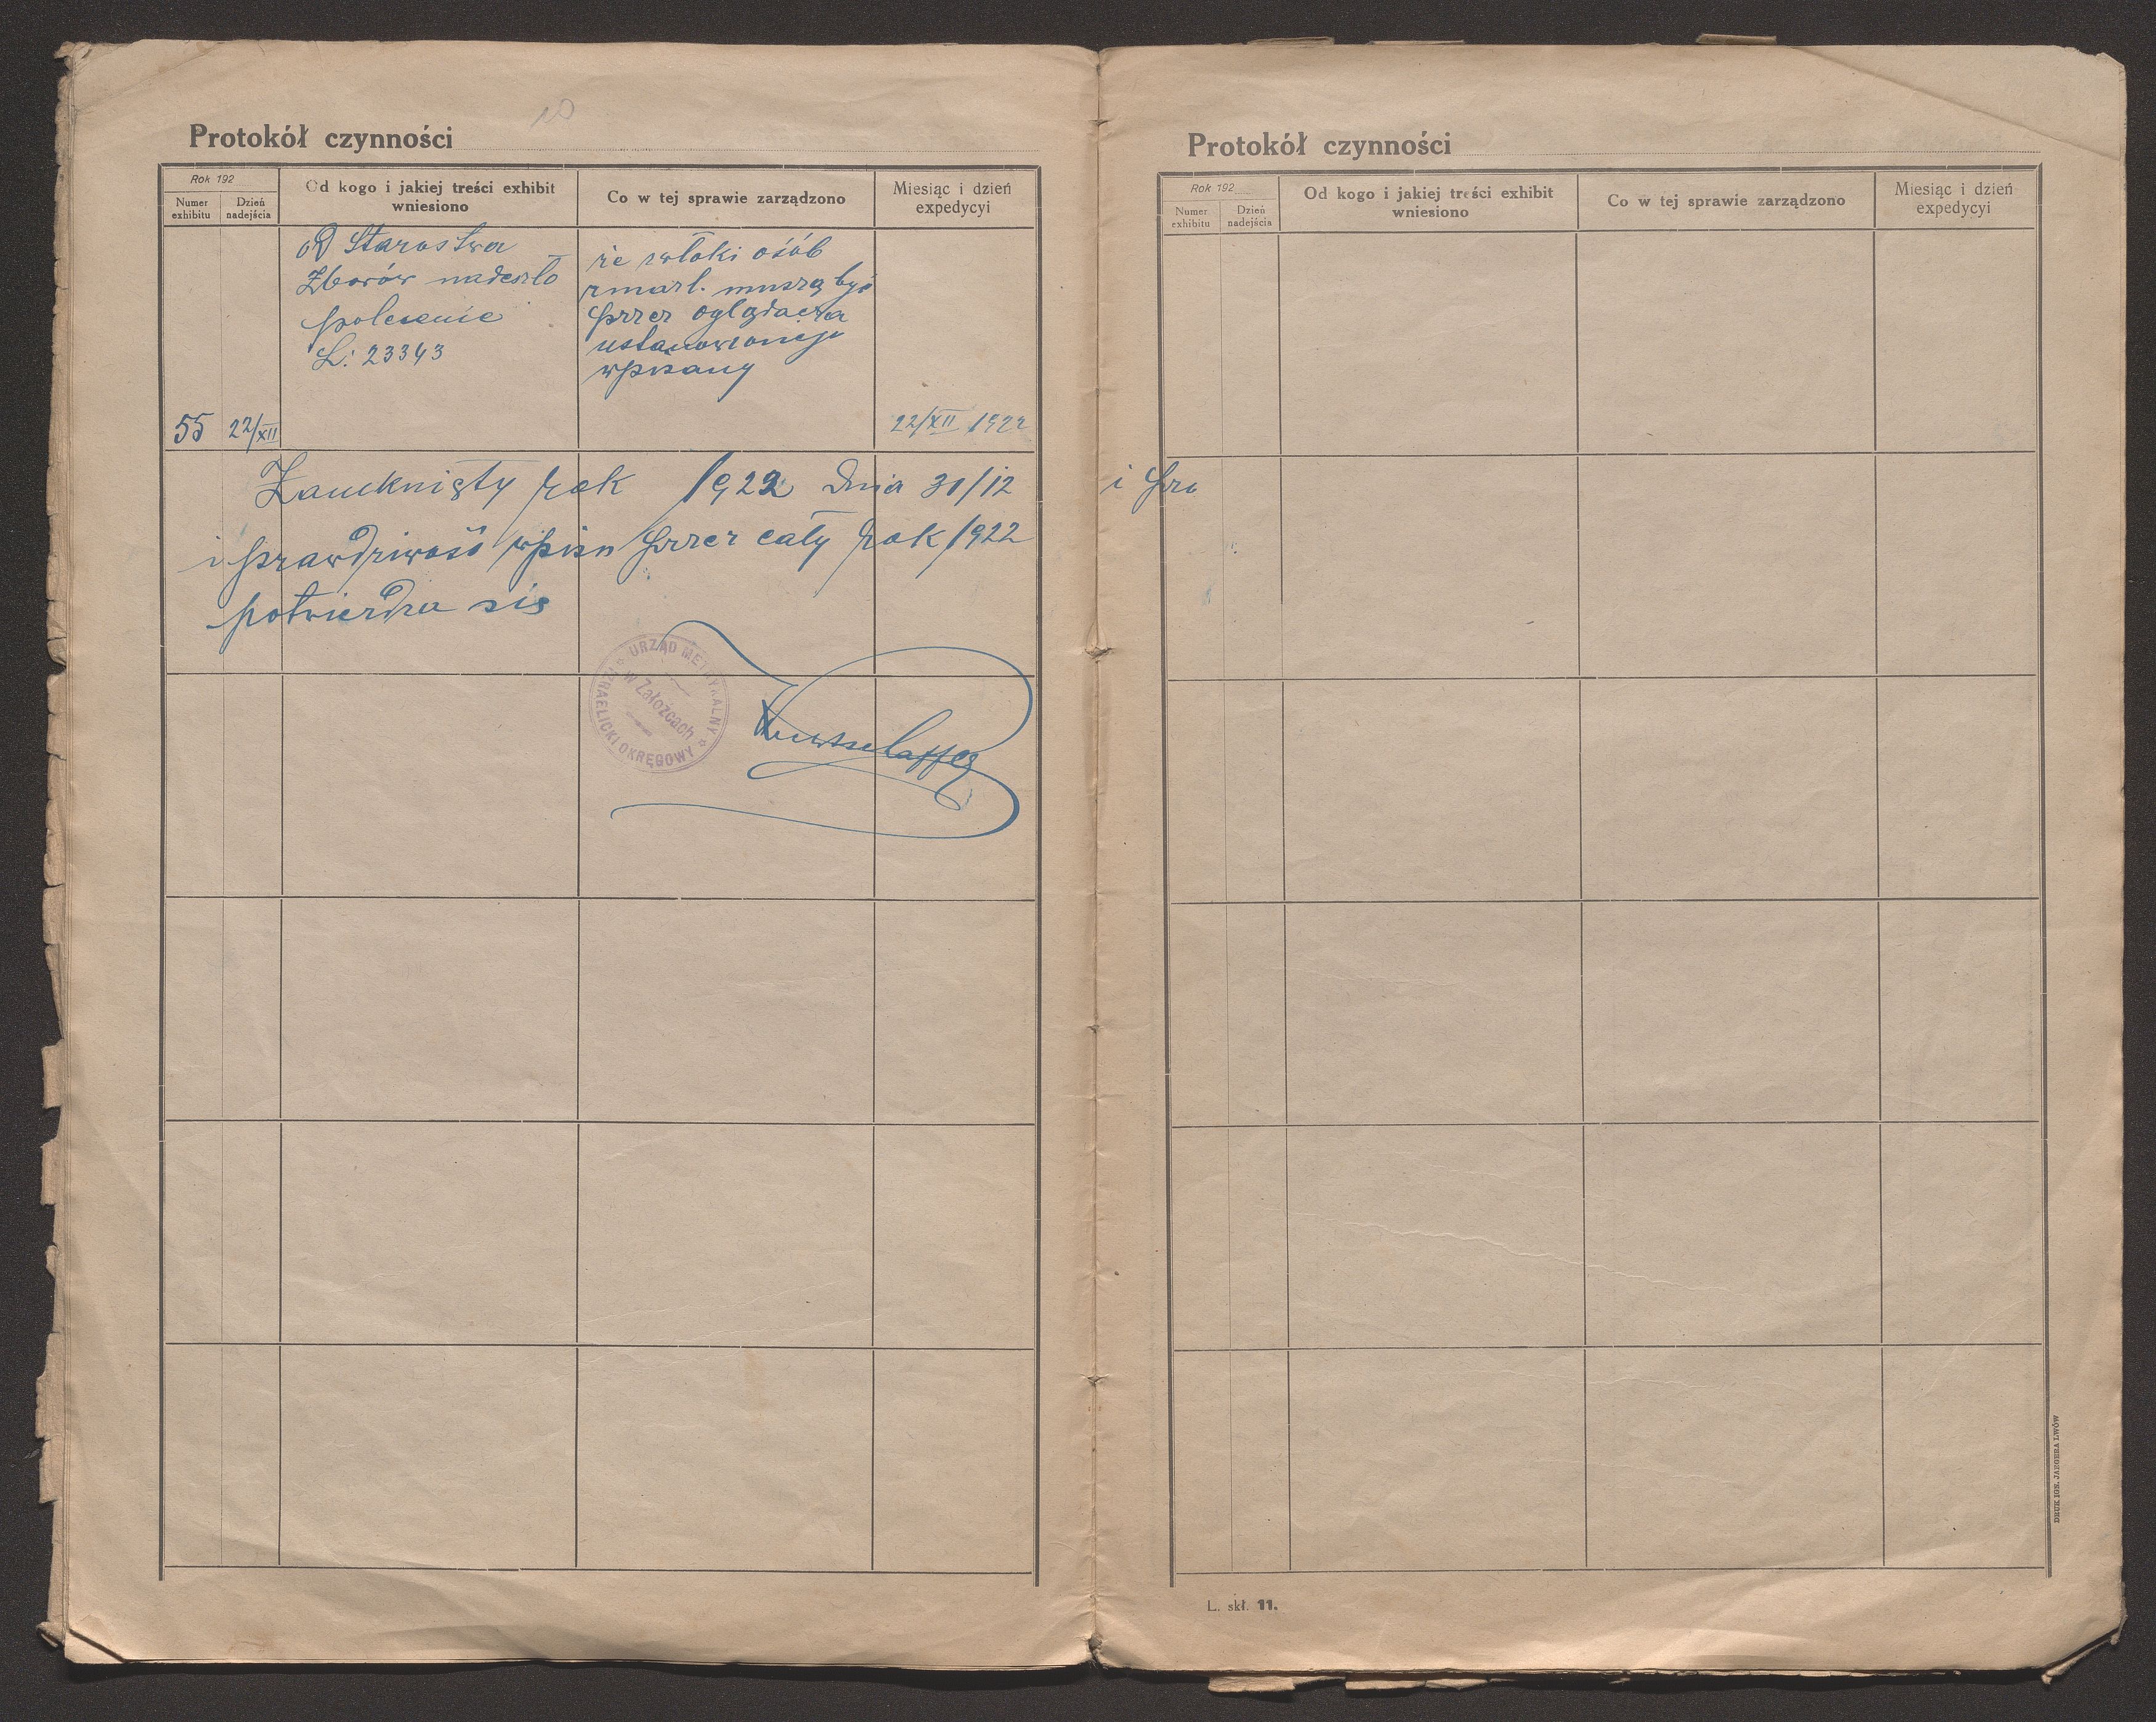 10
Protokół czynności
Rok 192
Numer exhibitu
Dzień nadejścia
Od kogo i jakiej treści exhibit wniesiono
Co w tej sprawie zarządzono
Miesiąc i dzień expedycyi
od Starostwa
Zborów nadeszło
polecenie
L: 23343
że zwłoki osób
zmarł. muszą być
przez oglądacza
ustanowionego
wpisany
55 22/XII
22/XII 1922
Zamknięty rok 1922 dnia 31/12
i prawdziwość wpisu przez cały rok 1922
potwierdza się
URZĄD METRYKALNY
IZRAELICKI OKRĘGOWY
w Załoźcach
Protokół czynności
Rok 192
Numer exhibitu
Dzień nadejścia
Od kogo i jakiej treści exhibit wniesiono
Co w tej sprawie zarządzono
Miesiąc i dzień expedycyi
i prz
L. skł. 11.
DRUK IGN. JAEGERA LWÓW